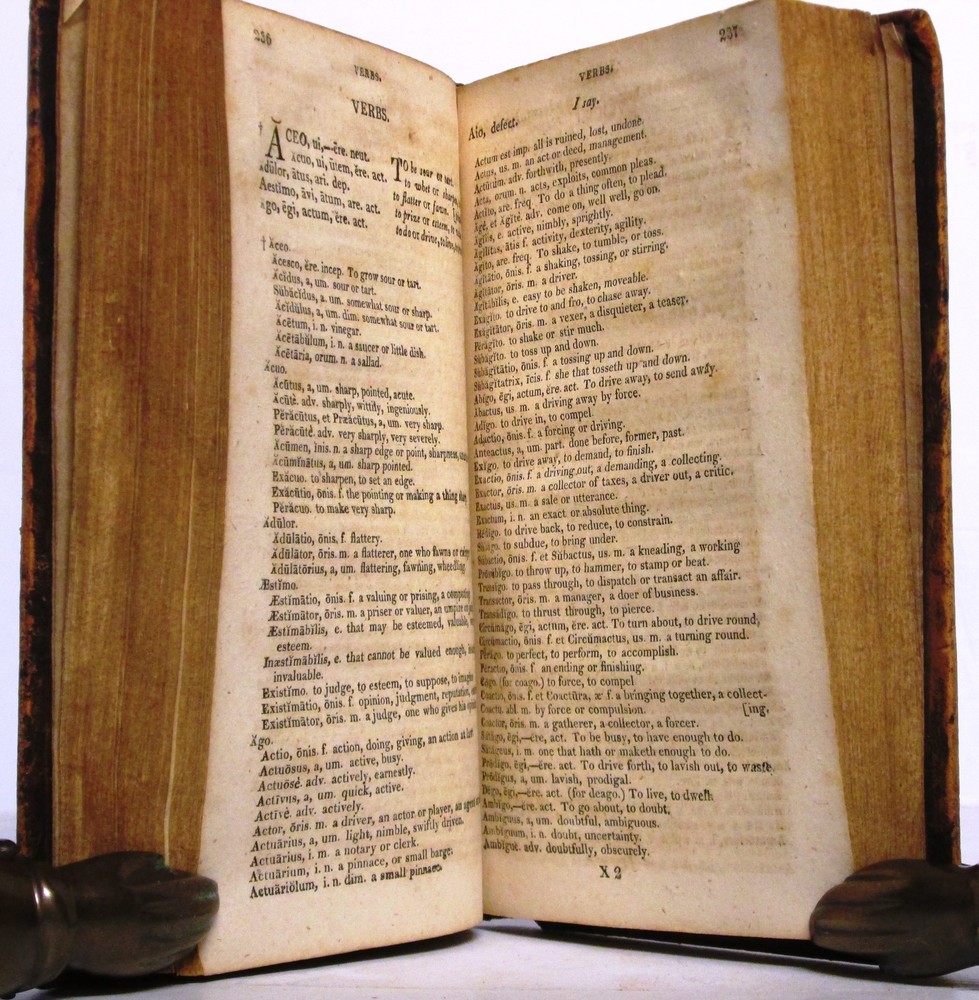 236
VERBS.
VERBS.
† ĂCEO, ui,—ēre. neut.
Ăcuo, ui, ūtem, ĕre. act.
Ădūlor, ātus, ari. dep.
Aestĭmo, āvi, ātum, are. act.
Ăgo, ēgi, actum, ĕre. act.
TO be sour or tart.
to whet or sharpen
to flatter or fawn.
to prize or esteem,
to do or drive,
† Ăceo.
Ăcesco, ĕre. incep. To grow sour or tart.
Ăcĭdus, a, um. sour or tart.
Sŭbăcĭdus, a. um. somewhat sour or sharp.
Ăcĭdŭlus, a, um. dim. somewhat sour or tart.
Ăcētum, i. n. vinegar.
Ăcētābŭlum, i. n. a saucer or little dish.
Ăcētāria, orum. n. a sallad.
Ăcuo.
Ăcūtus, a, um. sharp, pointed, acute.
Ăcūtè. adv. sharply, wittily, ingeniously.
Pĕrăcūtus, et Præăcūtus, a, um. very sharp.
Pĕrăcūtè. adv. very sharply, very severely.
Ăcūmen, ĭnis. n. a sharp edge or point, sharpness,
Ăcūmĭnātus, a, um. sharp pointed.
Exăcuo. to sharpen, to set an edge.
Exăcūtio, ōnis. f. the pointing or making a thing
Pĕrăcuo. to make very sharp.
Ădūlor.
Ădūlātio, ōnis, f. flattery.
Ădūlātor, ōris. m. a flatterer, one who fawns or
Ădūlātōrius, a, um. flattering, fawning, wheedling.
Æstĭmo.
Æstĭmātio, ōnis. f. a valuing or prising, a computing
Æstĭmātor, ōris. m. a priser or valuer, an umpire
Æstĭmābĭlis, e. that may be esteemed, valuable,
esteem.
Inæstĭmābĭlis, e. that cannot be valued enough,
invaluable.
Existĭmo. to judge, to esteem, to suppose, to imagine
Existĭmātio, ōnis. f. opinion, judgment, reputation,
Existĭmātor, ōris. m. a judge, one who gives his
Ăgo.
Actio, ōnis. f. action, doing, giving, an action at law
Actuōsus, a, um. active, busy.
Actuōsè. adv. actively, earnestly.
Actīvus, a, um. quick, active.
Actīvè. adv. actively.
Actor, ōris. m. a driver, an actor or player, an agent
Actuārius, a, um. light, nimble, swiftly driven.
Actuārius, i. m. a notary or clerk.
Actuārium, i. n. a pinnace, or small barge.
Actuāriŏlum, i. n. dim. a small pinnace.
237
VERBS.
I say.
Aio, defect.
Actum est imp. all is ruined, lost, undone.
Actus, us. m. an act or deed, management.
Actūtùm. adv. forthwith, presently.
Acta, orum. n. acts, exploits, common pleas.
Actĭto, are. freq. To do a thing often, to plead.
Ăgĕ, et Ăgĭtĕ. adv. come on, well well, go on.
Ăgĭlis, e. active, nimbly, sprightly.
Ăgĭlĭtas, ātis f. activity, dexterity, agility.
Ăgĭto, are. freq. To shake, to tumble, or toss.
Ăgĭtātio, ōnis. f. a shaking, tossing, or stirring.
Ăgĭtātor, ōris. m. a driver.
Ăgĭtābĭlis, e. easy to be shaken, moveable.
Exăgĭto. to drive to and fro, to chase away.
Exăgĭtātor, ōris. m. a vexer, a disquieter, a teaser.
Pĕrăgĭto. to shake or stir much.
Sŭbăgĭto. to toss up and down.
Sŭbăgĭtātio, ōnis. f. a tossing up and down.
Sŭbăgĭtatrix, īcis. f. she that tosseth up and down.
Abĭgo, ēgi, actum, ĕre. act. To drive away, to send away.
Abactus, us. m. a driving away by force.
Adĭgo. to drive in, to compel.
Adactio, ōnis. f. a forcing or driving.
Anteactus, a, um. part. done before, former, past.
Exĭgo. to drive away, to demand, to finish.
Exactio, ōnis. f. a driving out, a demanding, a collecting.
Exactor, ōris. m. a collector of taxes, a driver out, a critic.
Exactus, us. m. a sale or utterance.
Exactum, i. n. an exact or absolute thing.
Rĕdĭgo. to drive back, to reduce, to constrain.
Sŭbĭgo. to subdue, to bring under.
Sŭbactio, ōnis. f. et Sŭbactus, us. m. a kneading, a working
to throw up, to hammer, to stamp or beat.
Transĭgo. to pass through, to dispatch or transact an affair.
Transactor, ōris. m. a manager, a doer of business.
Transădĭgo. to thrust through, to pierce.
Circŭmăgo, ēgi, actum, ĕre. act. To turn about, to drive round,
Circŭmactio, ōnis. f. et Circŭmactus, us. m. a turning round.
Pĕrăgo. to perfect, to perform, to accomplish.
Pĕractio, ōnis. f. an ending or finishing.
Cōgo (for coago.) to force, to compel
Coactio, ōnis. f. et Coactūra, æ f. a bringing together, a collect-
Coactu. abl m. by force or compulsion. [ing.
Coactor, ōris. m. a gatherer, a collector, a forcer.
Sătăgo, ēgi,—ĕre, act. To be busy, to have enough to do.
Sătăgeus, i. m. one that hath or maketh enough to do.
Prōdĭgo, ēgi,—ĕre. act. To drive forth, to lavish out, to waste.
Prōdĭgus, a, um. lavish, prodigal.
Dēgo, ēgi,—ĕre. act. (for deago.) To live, to dwell.
Ambĭgo,—ĕre. act. To go about, to doubt.
Ambĭguus, a, um. doubtful, ambiguous.
Ambĭguum, i. n. doubt, uncertainty.
Ambĭguè. adv. doubtfully, obscurely.
X 2